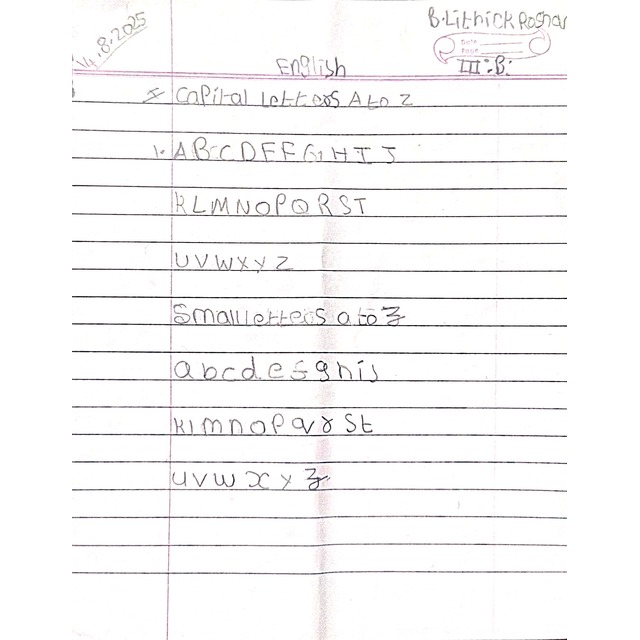 14.8.2025
B. Lithick Roshan
Date
Page
III : B :
English
I Capital Letters A to Z
1. A B C D E F G H I J
K L M N O P Q R S T
U V W X Y Z
Small letters a to z
a b c d e f g h i j
k l m n o p q r s t
u v w x y z